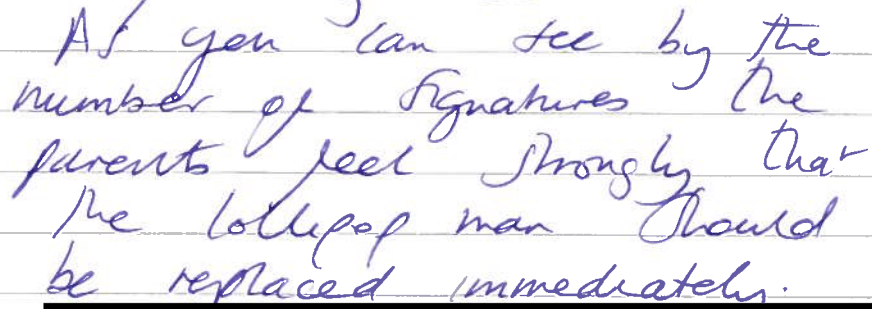 As you can see by the
number of signatures the
parents feel strongly that
the lollipop man should
be replaced immediately.